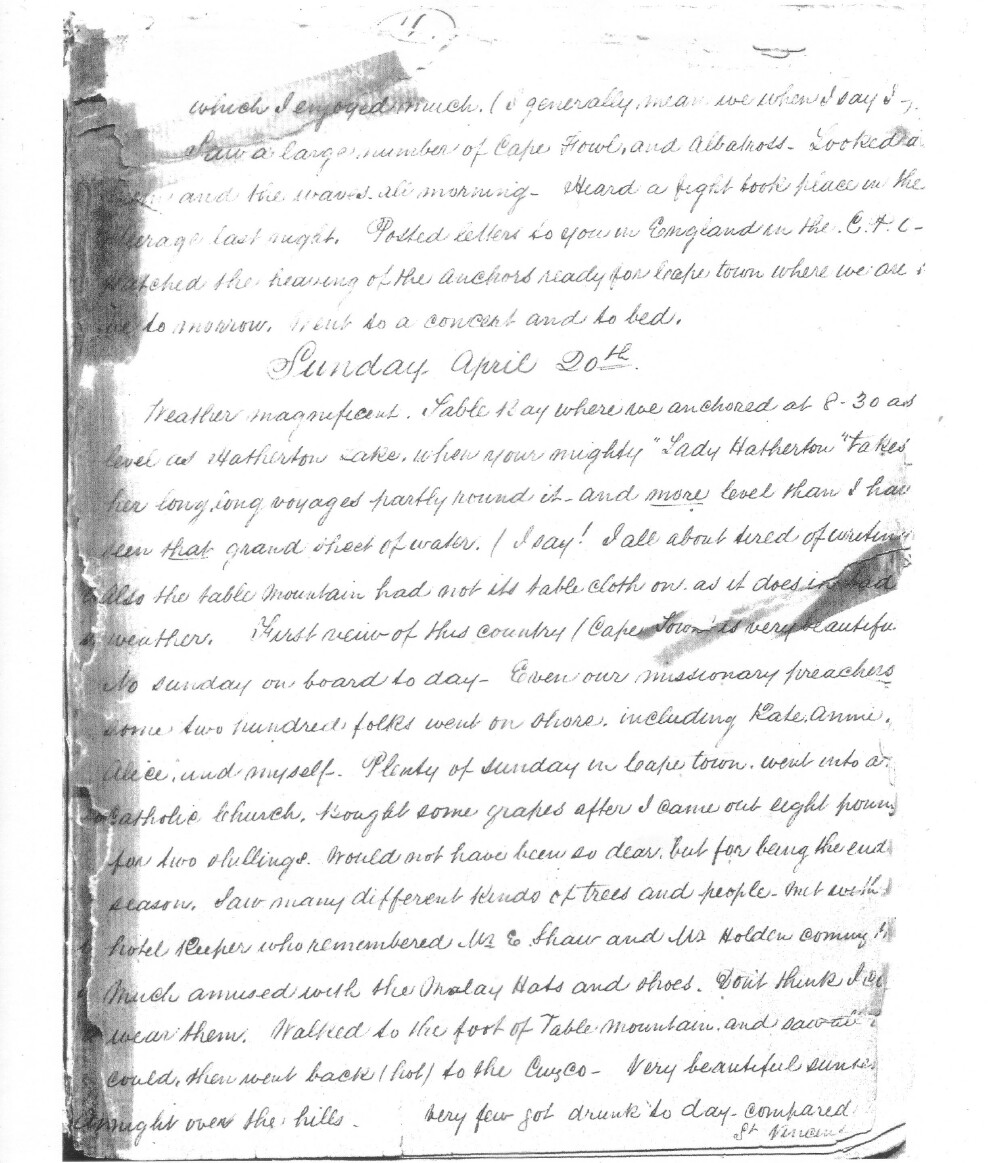 11
which I enjoyed much. (I generally mean we when I say I -
Saw a large number of Cape Fowl, and Albatross - Looked a
and the waves all morning - Heard a fight took place in the
last night. Posted letters to you in England in the
the heaving of the anchors ready for Cape town where we are
to morrow. Went to a concert and to bed.
Sunday April 20th.
Weather magnificent. Table Bay where we anchored at 8-30 as
level as Hatherton Lake, when your mighty "Lady Hatherton" takes
her long, long voyages partly round it - and more level than I have
seen that grand sheet of water. (I say! I all about tired of writing
Also the table Mountain had not its table cloth on as it does in bad
weather. First veiw of this country (Cape Town) is very beautifu
No sunday on board to day - Even our missionary preachers
some two hundred folks went on shore. including Kate, Annie,
Alice, and myself - Plenty of sunday in Cape town. went into a
Catholic Church. Bought some grapes after I came out eight poun
for two shillings. Would not have been so dear, but for being the end
season. Saw many different kinds of trees and people - Met with
hotel keeper who remembered Mr E Shaw and Mr Holden coming
Much amused with the Malay Hats and shoes. Dont think I co
wear them. Walked to the foot of Table Mountain, and saw all
could, then went back (hot) to the Cuzco - Very beautiful sunse
night over the hills. Very few got drunk to day - compared
St Vincent